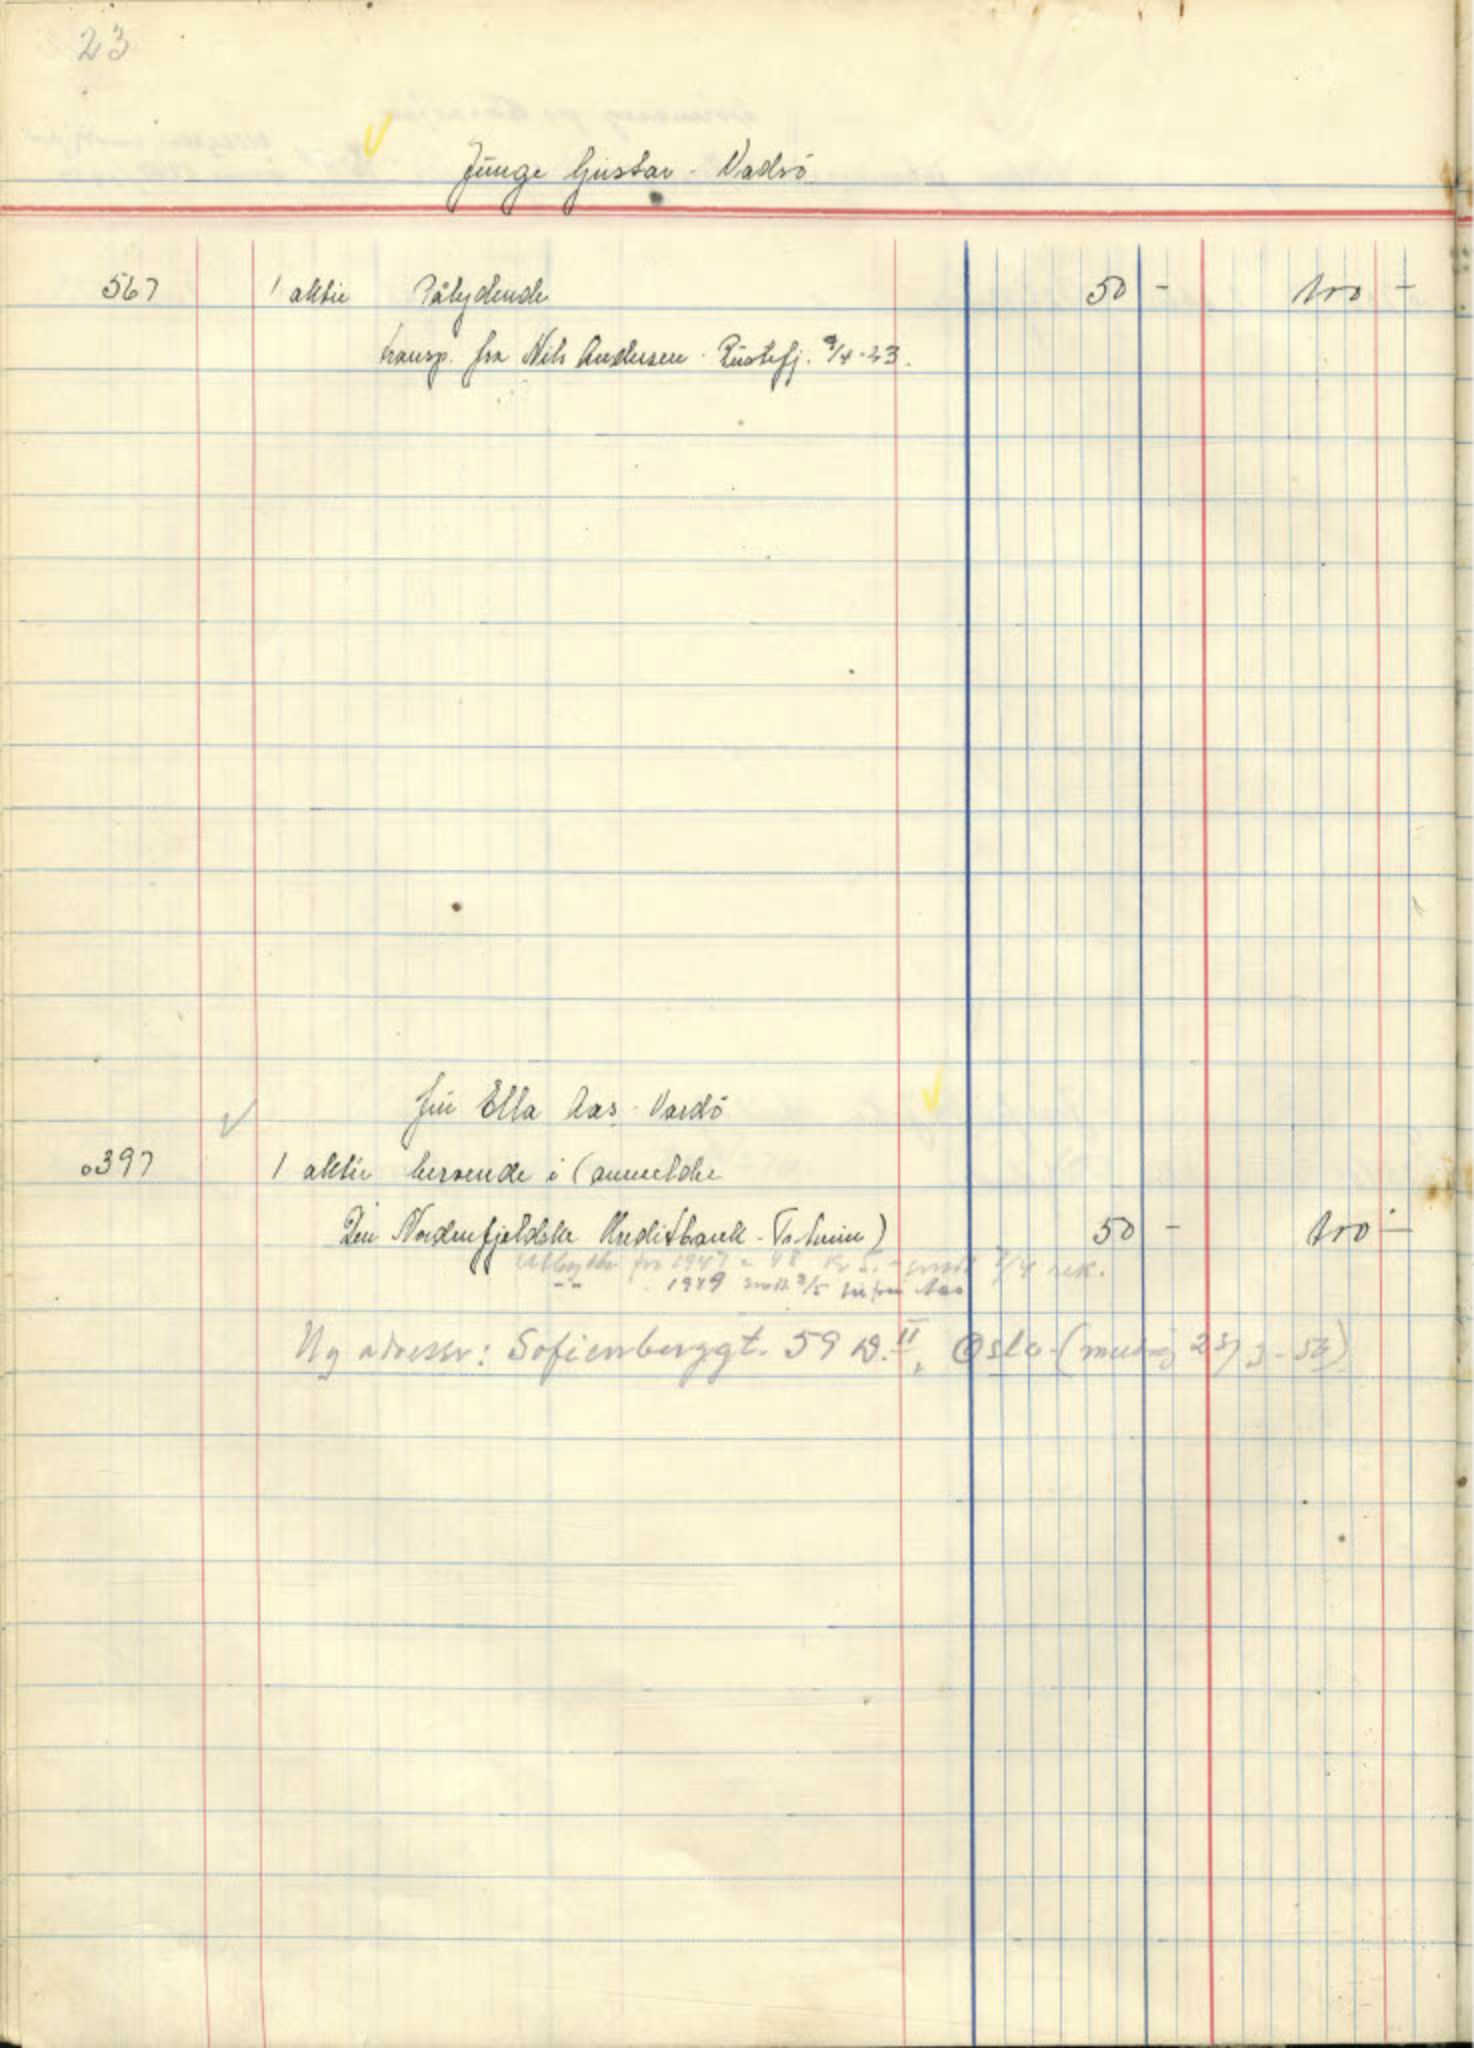 23
Junge Gustav - Vadsö
567 1 aktie Pålydende 50 - 100 -
transp. fra Nils Andersen - Rustefj. 3/4-23.
fru Ella Aas - Vardö
397 1 aktie beroende i (anmeldt
Den Nordenfjeldske Kreditbank - Tr.heim) 50 - 100 -
Utbytte for 1947 - 48 Kr 5.- sendt 7/4 rek.
1949 sendt 3/5 Aas
Ny adresse: Sofienberggt. 59 D. II, Oslo (